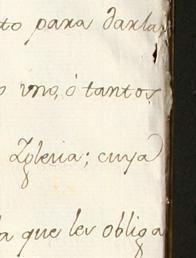 to para darla
uno, ó tantos
Iglesia; cuya
que les obliga